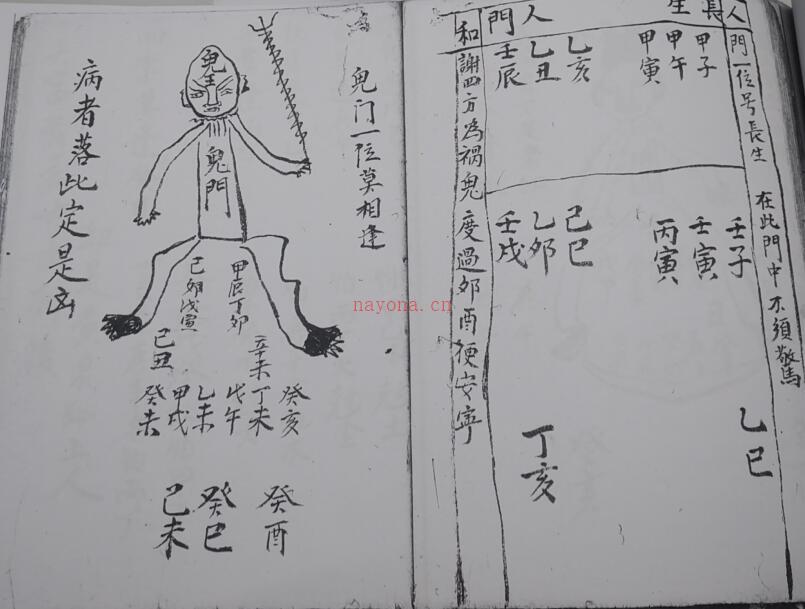 人門一位号長生 在此門中不須驚
長生人門
甲子 甲午 甲寅
乙亥 乙丑 壬辰
壬子 壬寅 丙寅
己巳 乙夘 壬戌
乙巳
丁亥
和謝四方為禍鬼 度過夘酉便安寧
鬼门一位莫相逢
鬼王
鬼門
甲辰丁夘
己夘戊寅
辛未
己丑
癸亥 丁未 戊午 乙未 甲戌 癸未
癸酉 癸巳 己未
病者落此定是凶
nayona.cn